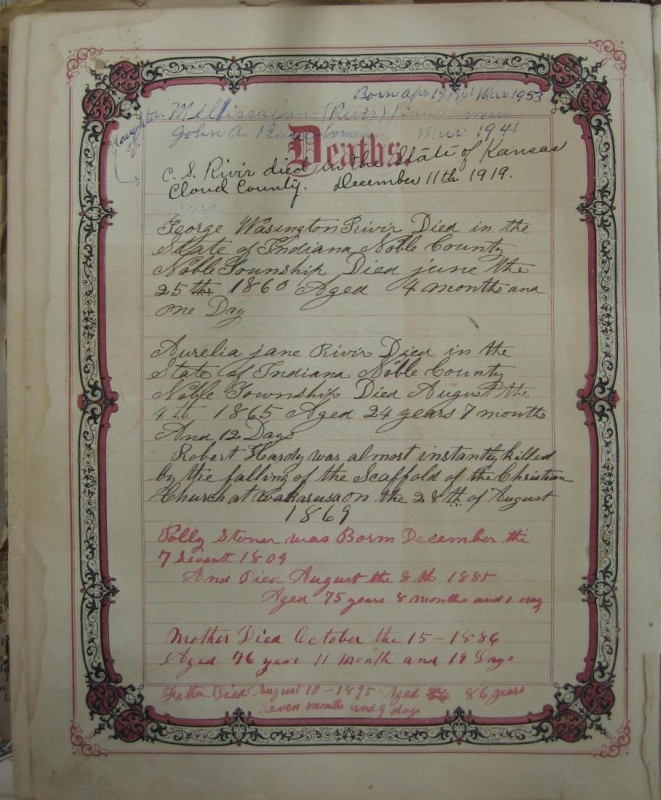 Born apr 19 Mar 1953
Daughter of
Mellissa Jane (River)
John A. Mar 1941
Deaths
C. S. Rivir died in the State of Kansas
Cloud County. December 11th 1919.
George Wasington Rivir Died in the
State of Indiana Noble County
Noble Township Died june the
25 th 1860 Aged 4 months and
one Day
Aurelia jane Rivir Died in the
State of Indiana Noble County
Noble Township Died August the
4 th 1865 Aged 24 years 7 months
And 12 Days
Robert Hardy was almost instantly killed
by the falling of the Scaffold of the Christian
Church at Wakarusa on the 28th of August
1869
Polly Stoner was Born December the
7 seventh 1809
And Died August the 8 th 1885
Aged 75 years 8 months and 1 day
Mother Died October the 15 - 1886
Aged 76 year 11 month and 19 Days
Father Died August 10 - 1895 Aged 86 years
seven months and 9 days